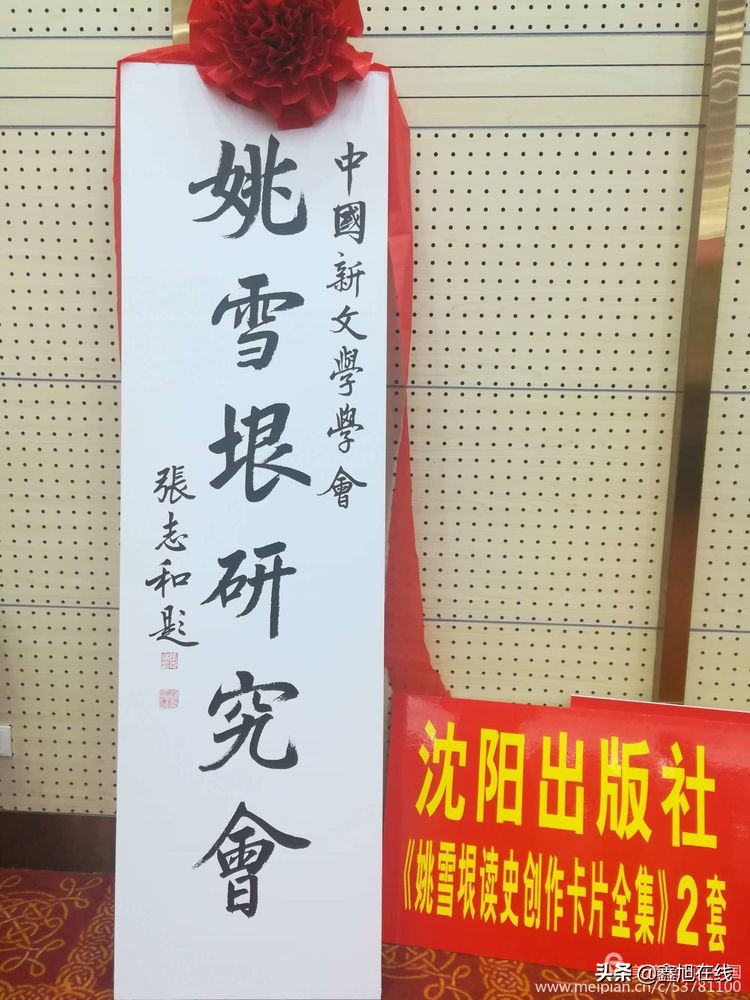 中國新文學學會
姚雪垠研究會
張志和題
沈阳出版社
《姚雪垠读史创作卡片全集》2套
头条 @鑫旭在线
www.meipian.cn/c/53781100